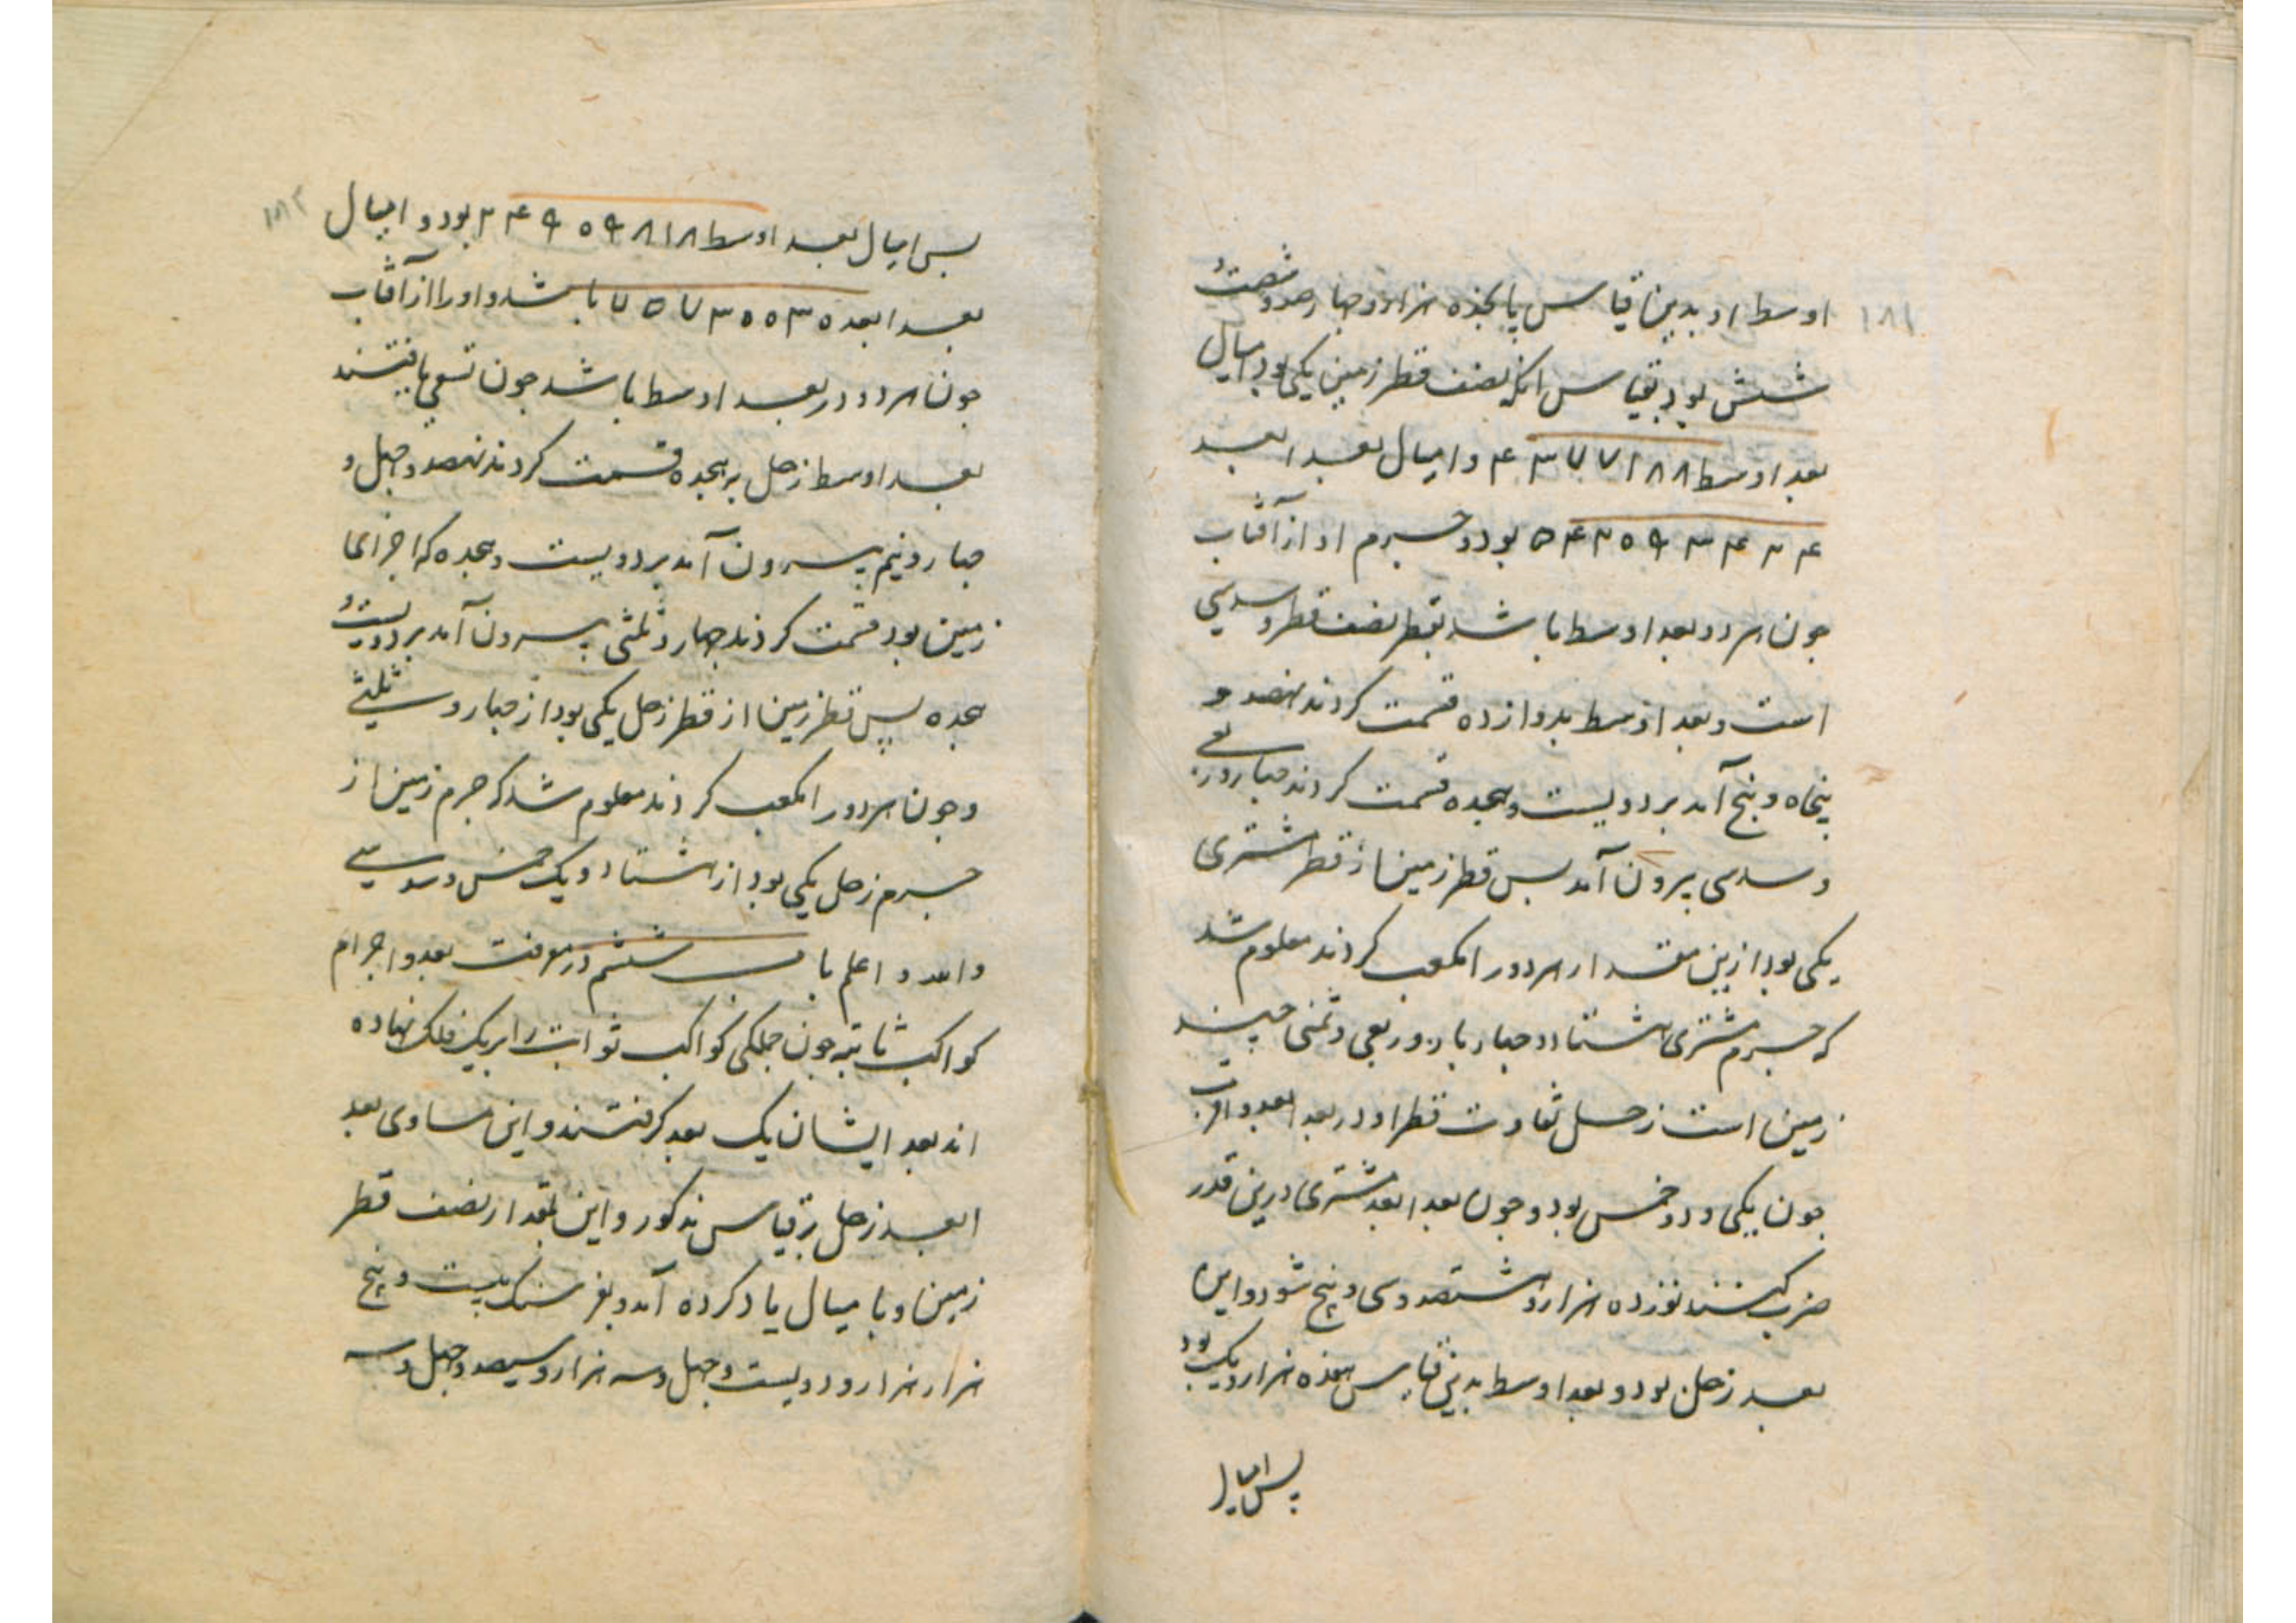 ۱۸۱
اوسط او بدین قیاس پانجده هزار و چهارصد و شصت و
شش بود بقیاس انکه نصف قطر زمین یکی بود امیال
بعد اوسط ۴۳۷۷۱۸۸ و امیال بعد ابعد
بود و جرم او از آفتاب
جون هر دو بعد اوسط باشد بقطر نصف قطر و سدسی
است و بعد اوسط بدوازده قسمت کردند نهصد و
پنجاه و پنج آمد بر دویست و هجده قسمت کردند چهار و ربعی
و سدسی بیرون آمد بس قطر زمین از قطر مشتری
یکی بود ازین مقدار هر دو را مکعب کردند معلوم شد
که جرم مشتری هشتاد و چهار بار و ربعی و ثمنی چند
زمین است زحل تفاوت قطر او در بعد ابعد و اقرب
جون یکی و دو خمس بود و جون بعد ابعد مشتری درین قدر
ضرب کنند نوزده هزار و هشتصد و سی و پنج شود و این
بعد زحل بود و بعد اوسط بدین قیاس هفده هزار و یک بود
پس امیال
۱۸۲
بس امیال بعد اوسط ۲۴۹۵۹۸۱۸ بود و امیال
بعد ابعد باشد و او را از آفتاب
جون هر دو در بعد اوسط باشد جون تسعی یافتند
بعد اوسط زحل بر هجده قسمت کردند نهصد و چهل و
چهار و نیم بیرون آمد بر دویست و هجده که اجزای
زمین بود قسمت کردند چهار و ثلثی بیرون آمد بر دویست و
هجده پس قطر زمین از قطر زحل یکی بود از چهار و ثلثی
و جون هر دو را مکعب کردند معلوم شد که جرم زمین از
جرم زحل یکی بود از هشتاد و یک خمس و سدسی
والله اعلم باب ششم در معرفت بعد و اجرام
کواکب ثابته جون جملکی کواکب ثوابت را بر یک فلک نهاده
اند بعد ایشان یک بعد کرفتند و این مساوی بعد
ابعد زحل بر قیاس مذکور و این بمقدار نصف قطر
زمین و با میال یاد کرده آمد و بفرسنک بیست و پنج
هزار هزار و دویست و چهل و سه هزار و سیصد و چهل و سه